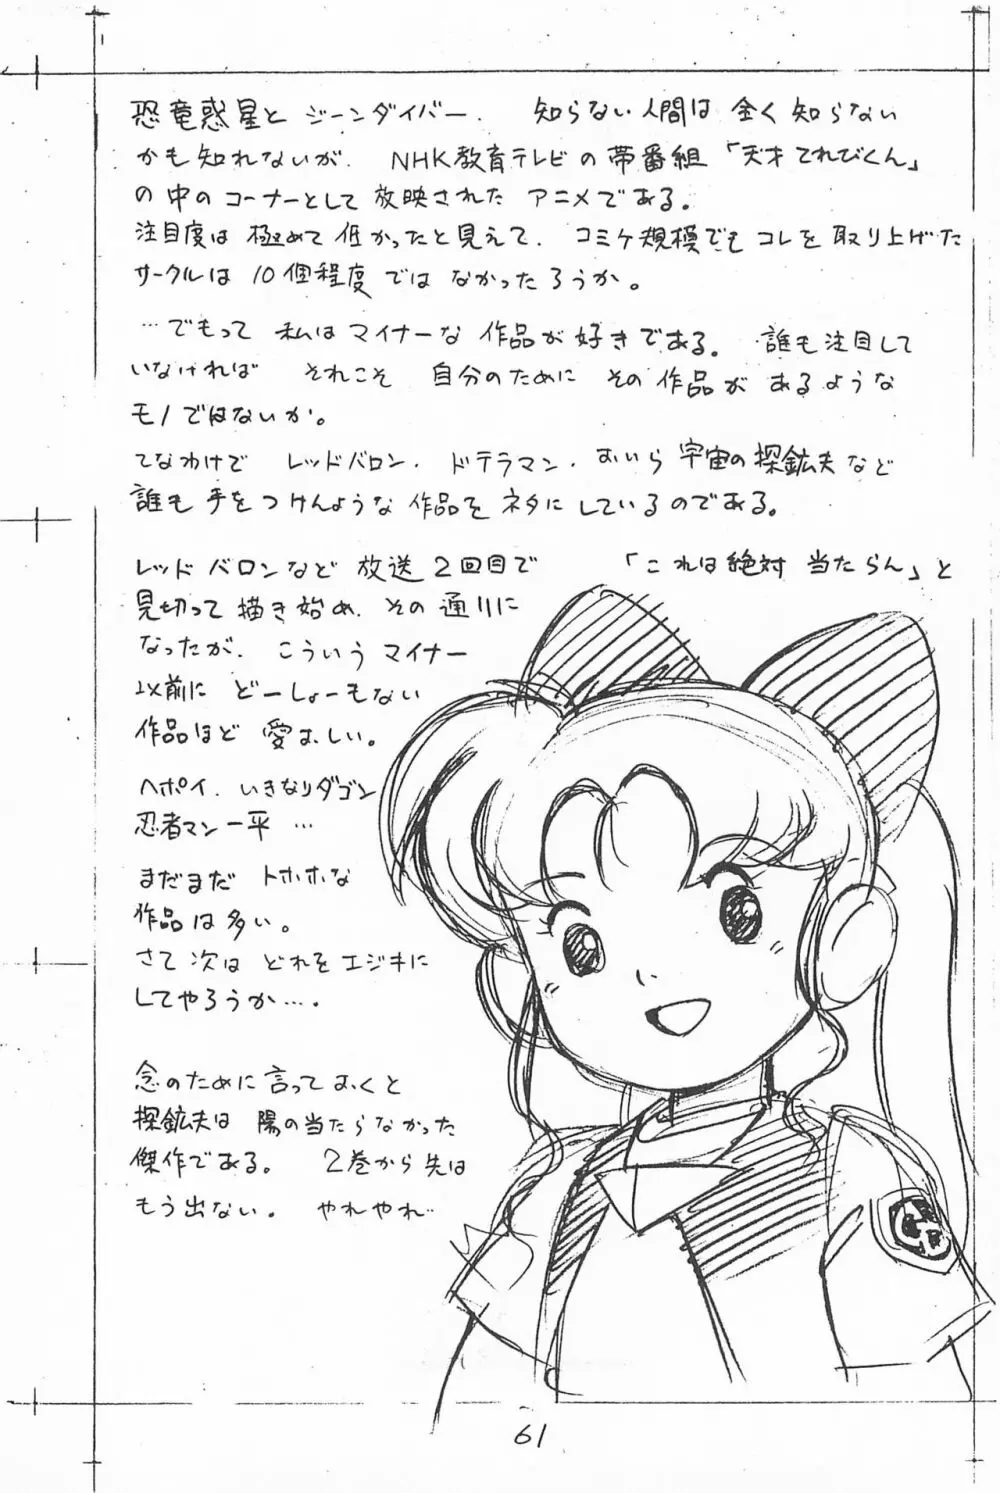 恐竜惑星と ジーンダイバー. 知らない人間は 全く 知らない
かも知れないが. NHK教育テレビの 帯番組「天才てれびくん」
の中の コーナーとして 放映された アニメである。
注目度は 極めて 低かったと見えて. コミケ規模でも コレを 取り上げた
サークルは 10個程度では なかったろうか。
…でもって 私はマイナーな 作品が好きである。 誰も注目して
いなければ それこそ 自分のために その作品が あるような
モノではないか。
てなわけで レッドバロン. ドテラマン. おいら 宇宙の探鉱夫など
誰も 手を つけんような 作品を ネタに しているのである。
レッド バロンなど 放送 2回目で 「これは絶対 当たらん」と
見切って 描き始め. その通りに
なったが. こういう マイナー
以前に どーしょーもない
作品ほど 愛おしい。
ヘポイ. いきなりダゴン
忍者マン一平 …
まだまだ トホホな
作品は多い。
さて 次は どれを エジキに
してやろうか…。
念のために 言って おくと
探鉱夫は 陽の当たらなかった
傑作である。 2巻から先は
もう出ない。 やれやれ…
61